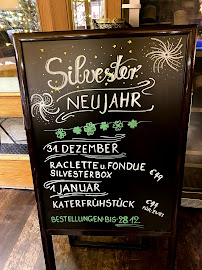 Silvester
NEUJAHR
31 DEZEMBER
RACLETTE U. FONDUE
SILVESTERBOX
1 JANUAR
KATERFRÜHSTÜCK
BESTELLUNGEN BIS 28.12.